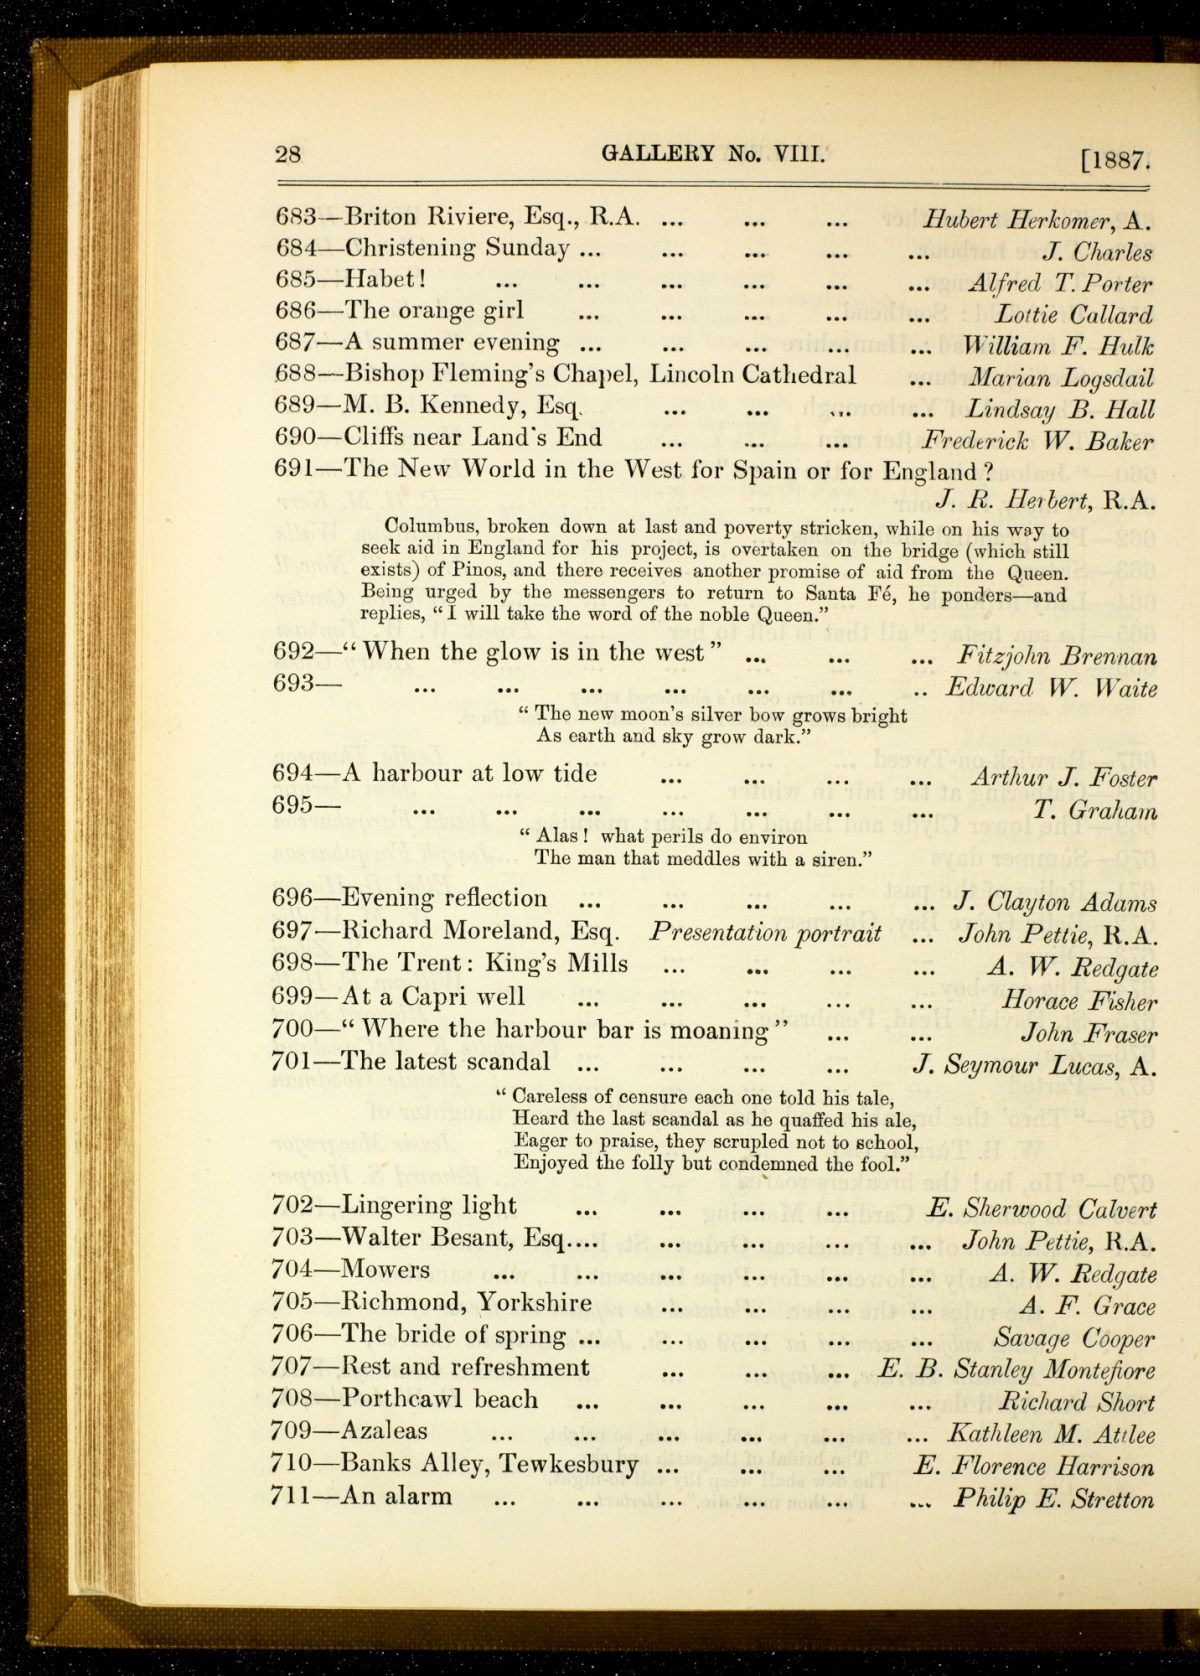 28 GALLERY No. VIII. [1887.
683—Briton Riviere, Esq., R.A. ... ... ... Hubert Herkomer, A.
684—Christening Sunday ... ... ... ... ... J. Charles
685—Habet! ... ... ... ... ... ... Alfred T. Porter
686—The orange girl ... ... ... ... ... Lottie Callard
687—A summer evening ... ... ... ... ... William F. Hulk
688—Bishop Fleming's Chapel, Lincoln Cathedral ... Marian Logsdail
689—M. B. Kennedy, Esq. ... ... ... ... Lindsay B. Hall
690—Cliffs near Land's End ... ... ... Frederick W. Baker
691—The New World in the West for Spain or for England?
J. R. Herbert, R.A.
Columbus, broken down at last and poverty stricken, while on his way to
seek aid in England for his project, is overtaken on the bridge (which still
exists) of Pinos, and there receives another promise of aid from the Queen.
Being urged by the messengers to return to Santa Fé, he ponders—and
replies, "I will take the word of the noble Queen."
692—"When the glow is in the west" ... ... ... Fitzjohn Brennan
693— ... ... ... ... ... ... .. Edward W. Waite
"The new moon's silver bow grows bright
As earth and sky grow dark."
694—A harbour at low tide ... ... ... ... Arthur J. Foster
695— ... ... ... ... ... ... ... T. Graham
"Alas! what perils do environ
The man that meddles with a siren."
696—Evening reflection ... ... ... ... ... J. Clayton Adams
697—Richard Moreland, Esq. Presentation portrait ... John Pettie, R.A.
698—The Trent: King's Mills ... ... ... ... A. W. Redgate
699—At a Capri well ... ... ... ... ... Horace Fisher
700—"Where the harbour bar is moaning" ... ... John Fraser
701—The latest scandal ... ... ... ... J. Seymour Lucas, A.
"Careless of censure each one told his tale,
Heard the last scandal as he quaffed his ale,
Eager to praise, they scrupled not to school,
Enjoyed the folly but condemned the fool."
702—Lingering light ... ... ... ... E. Sherwood Calvert
703—Walter Besant, Esq.... ... ... ... ... John Pettie, R.A.
704—Mowers ... ... ... ... ... ... A. W. Redgate
705—Richmond, Yorkshire ... ... ... ... A. F. Grace
706—The bride of spring ... ... ... ... ... Savage Cooper
707—Rest and refreshment ... ... ... E. B. Stanley Montefiore
708—Porthcawl beach ... ... ... ... ... Richard Short
709—Azaleas ... ... ... ... ... ... Kathleen M. Attlee
710—Banks Alley, Tewkesbury ... ... ... E. Florence Harrison
711—An alarm ... ... ... ... ... ... Philip E. Stretton